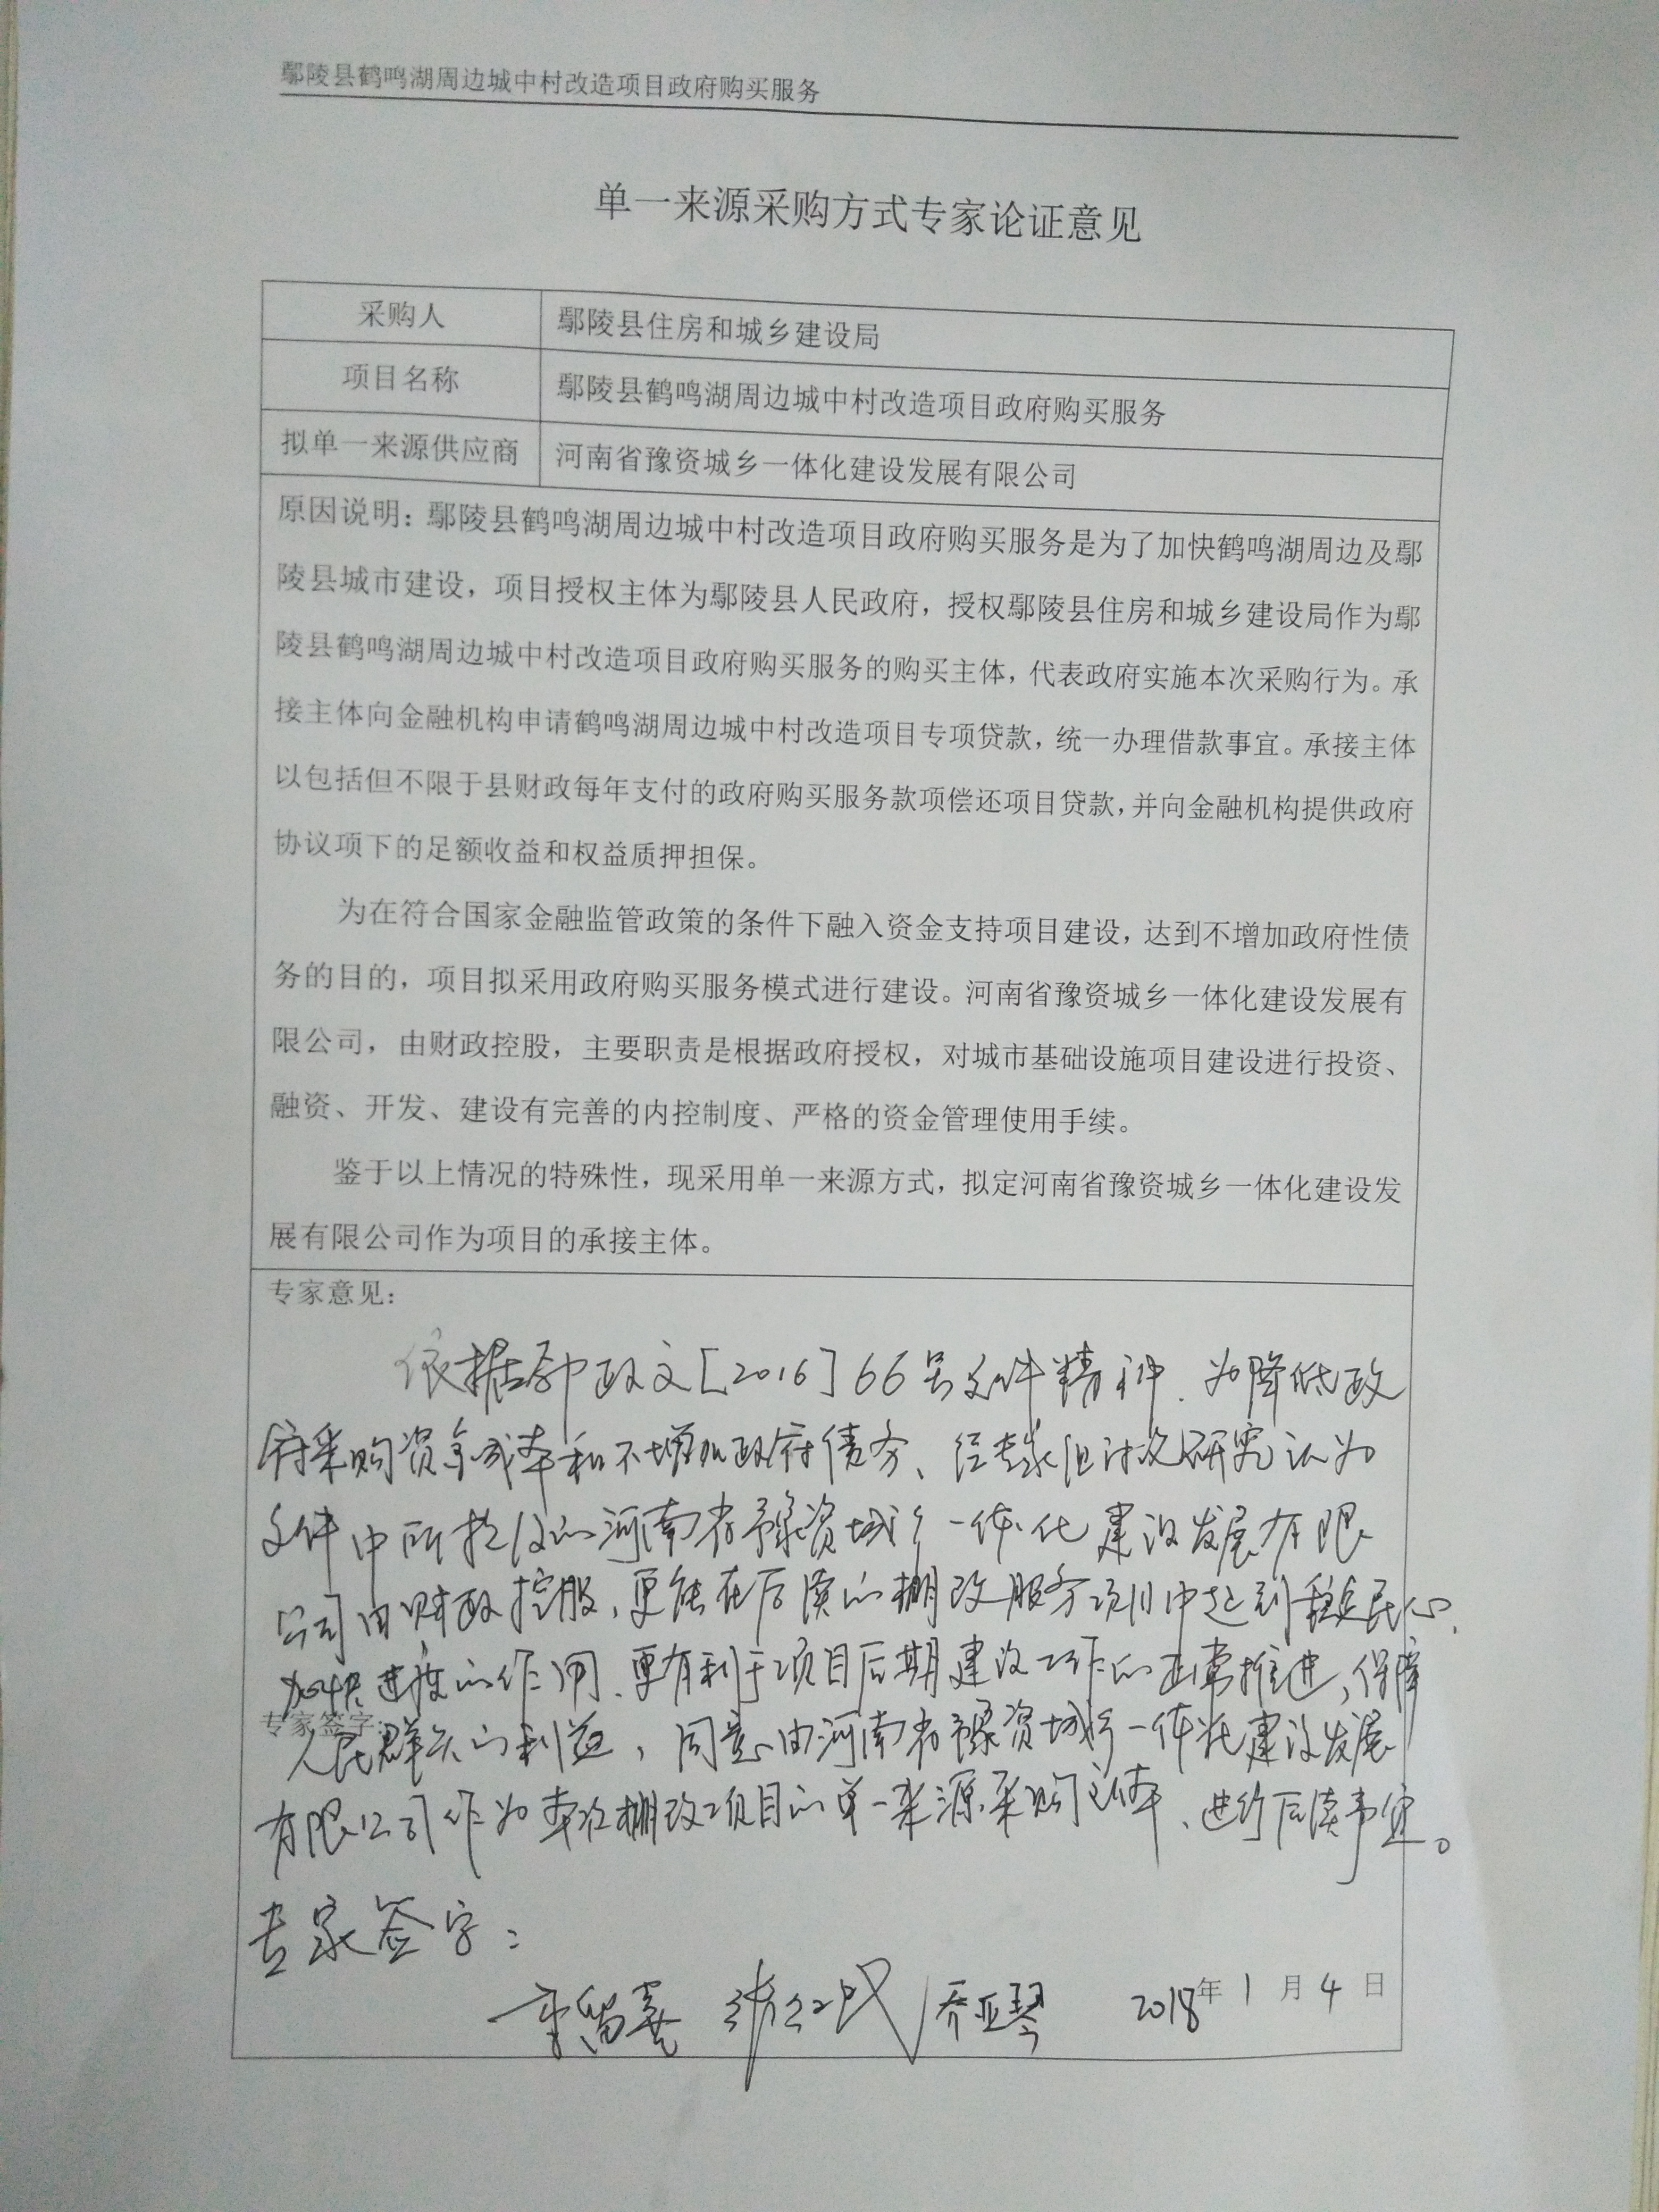 鄢陵县鹤鸣湖周边城中村改造项目政府购买服务
单一来源采购方式专家论证意见
采购人 鄢陵县住房和城乡建设局
项目名称 鄢陵县鹤鸣湖周边城中村改造项目政府购买服务
拟单一来源供应商 河南省豫资城乡一体化建设发展有限公司
原因说明：鄢陵县鹤鸣湖周边城中村改造项目政府购买服务是为了加快鹤鸣湖周边及鄢
陵县城市建设，项目授权主体为鄢陵县人民政府，授权鄢陵县住房和城乡建设局作为鄢
陵县鹤鸣湖周边城中村改造项目政府购买服务的购买主体，代表政府实施本次采购行为。承
接主体向金融机构申请鹤鸣湖周边城中村改造项目专项贷款，统一办理借款事宜。承接主体
以包括但不限于县财政每年支付的政府购买服务款项偿还项目贷款，并向金融机构提供政府
协议项下的足额收益和权益质押担保。
为在符合国家金融监管政策的条件下融入资金支持项目建设，达到不增加政府性债
务的目的，项目拟采用政府购买服务模式进行建设。河南省豫资城乡一体化建设发展有
限公司，由财政控股，主要职责是根据政府授权，对城市基础设施项目建设进行投资、
融资、开发、建设有完善的内控制度、严格的资金管理使用手续。
鉴于以上情况的特殊性，现采用单一来源方式，拟定河南省豫资城乡一体化建设发
展有限公司作为项目的承接主体。
专家意见：
依据鄢政文[2016]66号文件精神、为降低政
府采购资金成本和不增加政府债务、经专家组讨论研究认为
文件中所提及的河南省豫资城乡一体化建设发展有限
公司由财政控股，更能在后续的棚改服务项目中起到稳定民心、
加快进度的作用、更有利于项目后期建设工作的正常推进，保障
专家签字：
人民群众的利益，同意由河南省豫资城乡一体化建设发展
有限公司作为本次棚改项目的单一来源采购主体、进行后续事宜。
专家签字：
乔亚琴 2018年1月4日